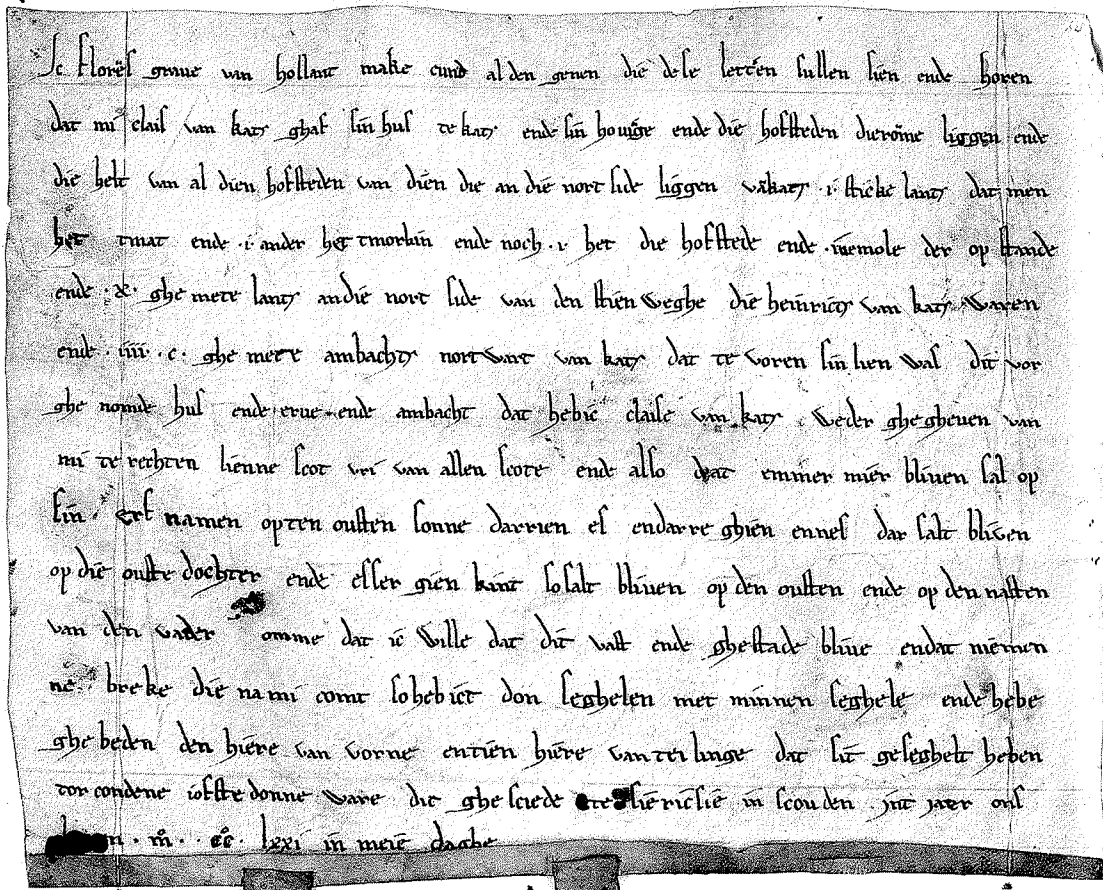 Ic florens graue van hollant make cund al den genen die dese letteren sullen sien ende horen
dat mi clais van kats ghaf sin hus te kats ende sin houinge ende die hofsteden dieromme liggen ende
die helt van al dien hofsteden van dien die an die nort side liggen van kats .i. sticke lants dat men
het tmat ende .i. ander het tmorkin ende noch .i. het die hofstede ende .i. memole der op stande
ende .x. ghe mete lants an die nort side van den stien weghe die heinrics van kats waren
ende .iiii. c. ghe mete ambachts nortwart van kats dat te voren sin lien was dit vor
ghe nomde hus ende erue ende ambacht dat hebic claise van kats weder ghe gheuen van
mi te rechten lienne scot vri van allen scote ende also dat emmer mer bliuen sal op
sin erf namen op ten outsten sonne darrien es endarre ghien ennes dar salt bliven
op die outste dochter ende esser gien kint so salt bliuen op den outsten ende op den nasten
van den vader omme dat ic wille dat dit vast ende ghestade bliue endat niemen
ne breke die na mi comt so hebict don seghelen met minnen seghele ende hebe
ghe beden den hiere van vorne entien hiere van teilinge dat sit geseghelt heben
tor condene ioftte donne ware die ghe sciede te siericsie in scouden int jaer ons
.m. cc. lxxi in meie daghe